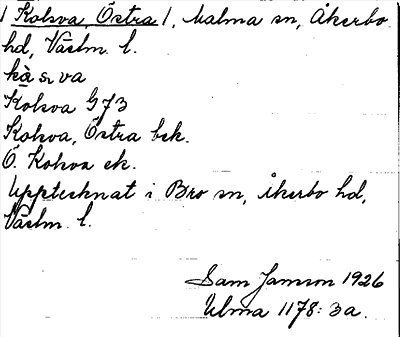 / Kolsva, Östra /, Malma sn, Åkerbo
hd, Västm. l.
kà s. va
Kolsva G73
Kolsva, Östra bek.
Ö. Kolsva ek.
Upptecknat i Bro sn, Åkerbo hd,
Västm. l.
Sam Jansson 1926
Ulma 1178: 3a.